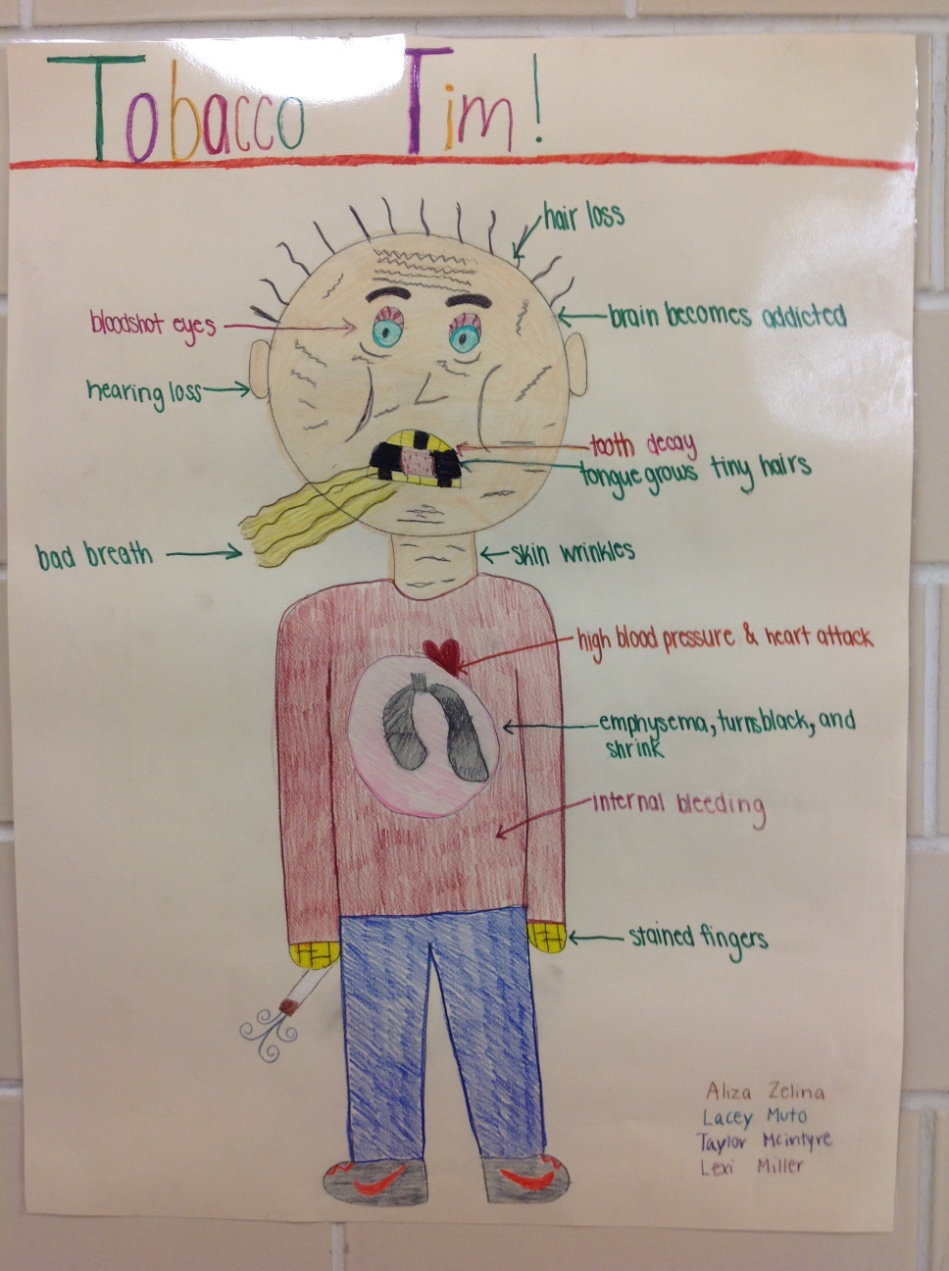 Tobacco Tim!
hair loss
bloodshot eyes
brain becomes addicted
hearing loss
tooth decay
tongue grows tiny hairs
bad breath
skin wrinkles
high blood pressure & heart attack
emphysema, turns black, and
shrink
internal bleeding
stained fingers
Aliza Zelina
Lacey Muto
Taylor Mcintyre
Lexi Miller